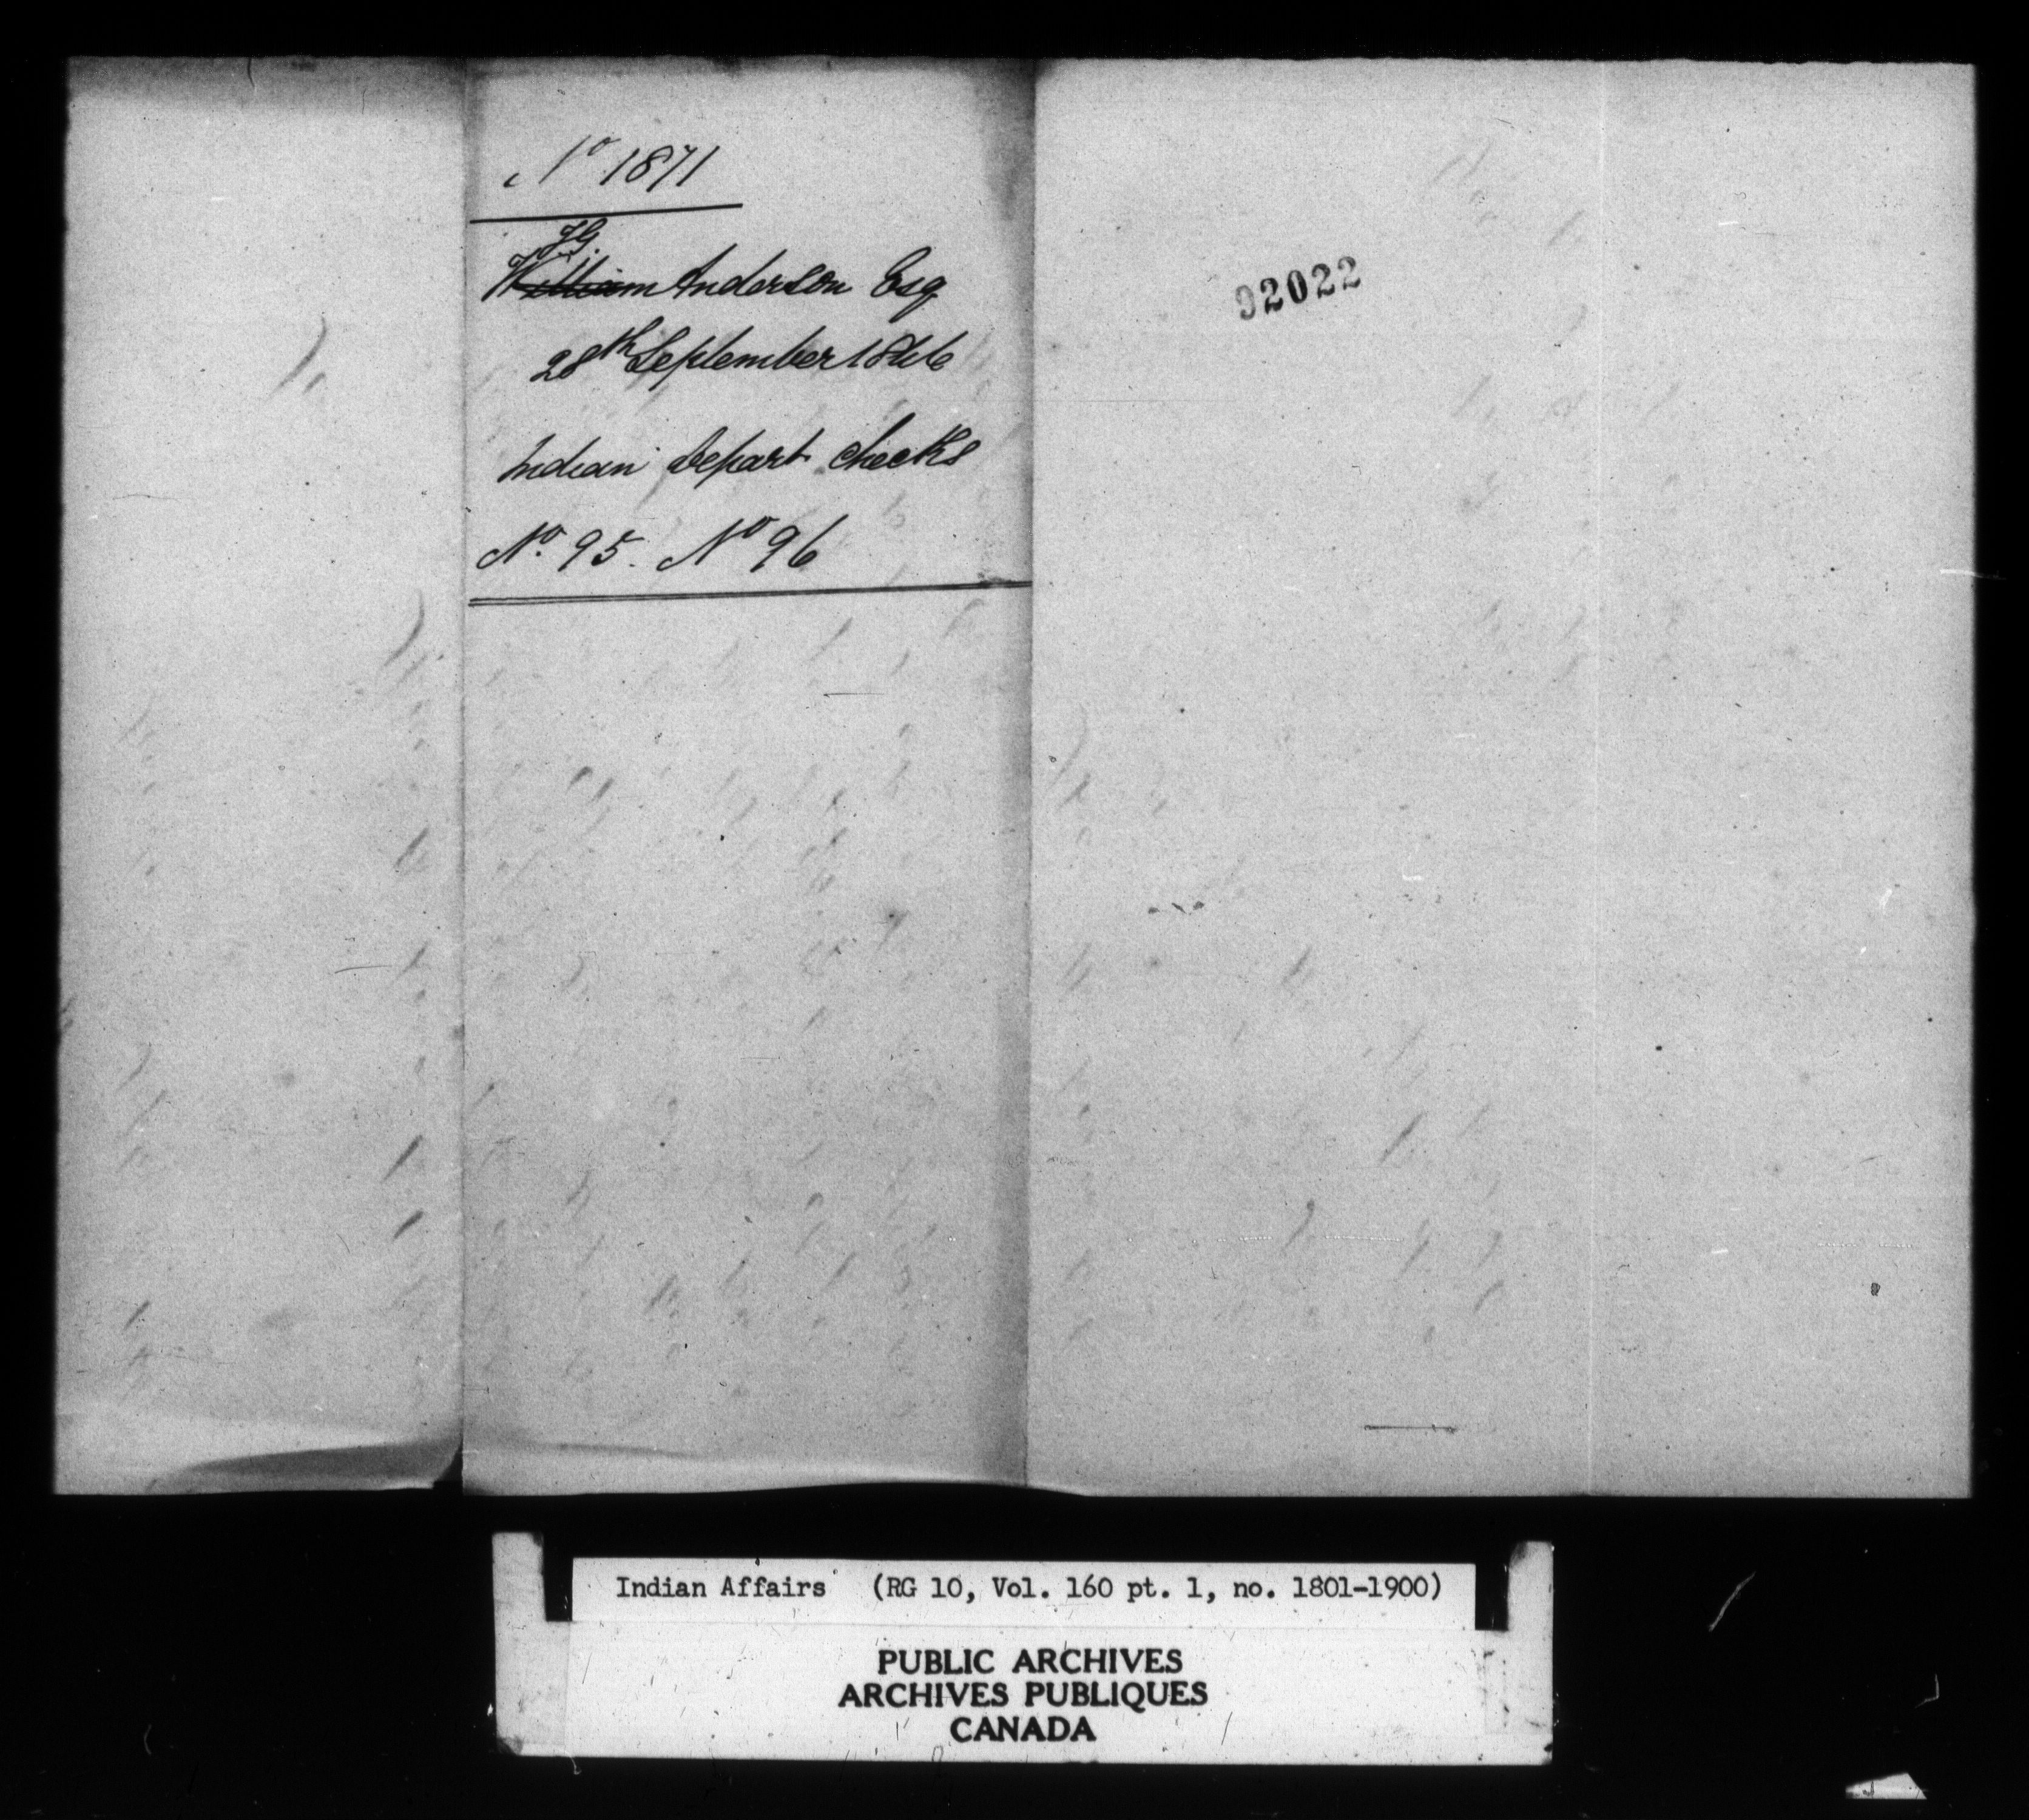 No 1871
TG.
William Anderson Esq
28th September 1846
Indian Depart checks
No. 95. No 96
92022
Indian Affairs (RG 10, Vol. 160 pt. 1, no. 1801-1900)
PUBLIC ARCHIVES
ARCHIVES PUBLIQUES
CANADA